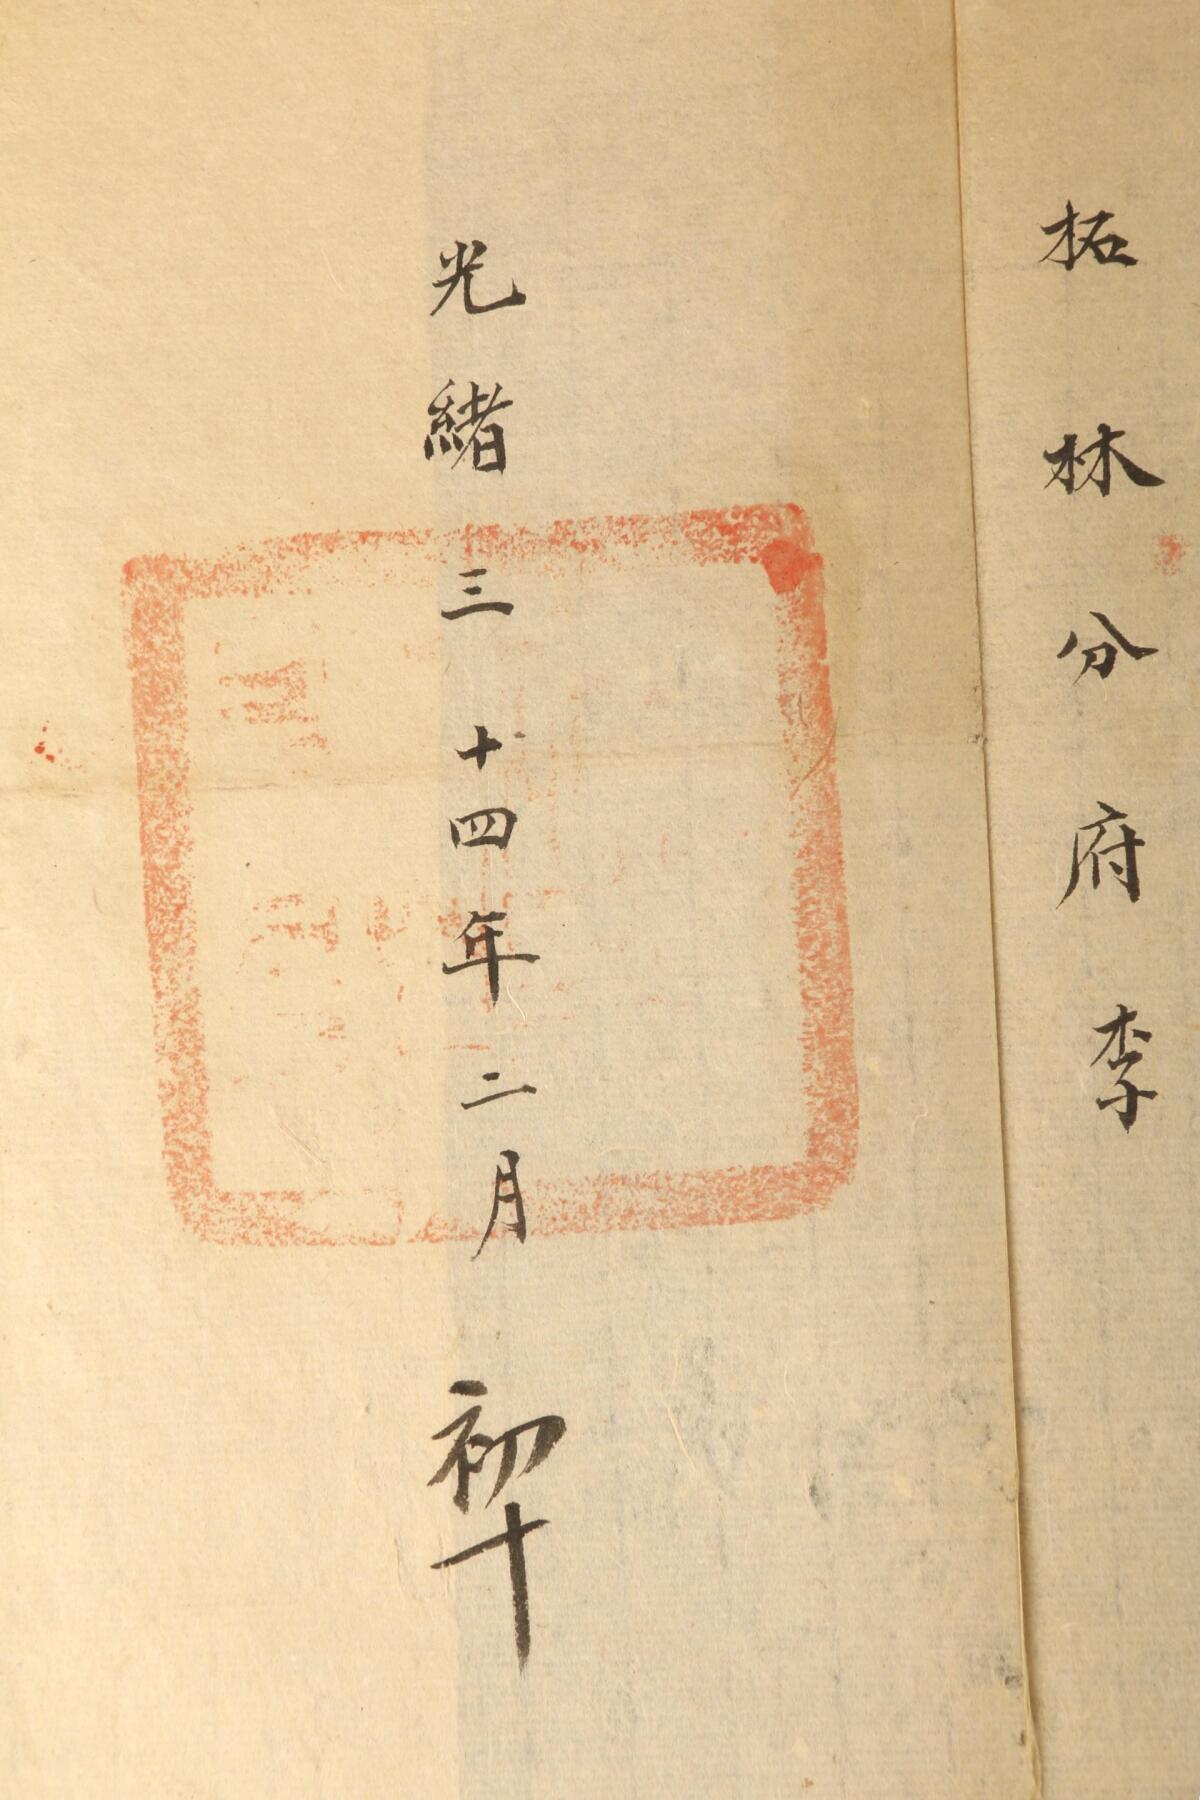 柘林分府李
光緒三十四年二月初十